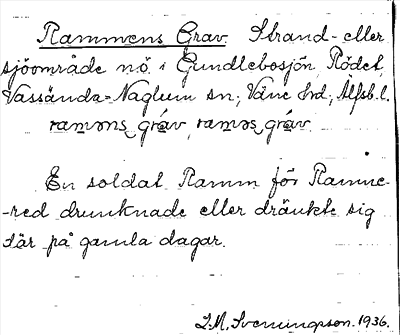 Rammens Grav. Strand- eller
sjöområde nö i Gundlebosjön, Rödet,
Vassända-Naglum sn, Väne hd, Älfsb. l.
raməns gráv, raməs gráv.
En soldat Ramm för Ramne-
-red drunknade eller dränkte sig
där på gamla dagar.
I.M. Svenningsson. 1936.